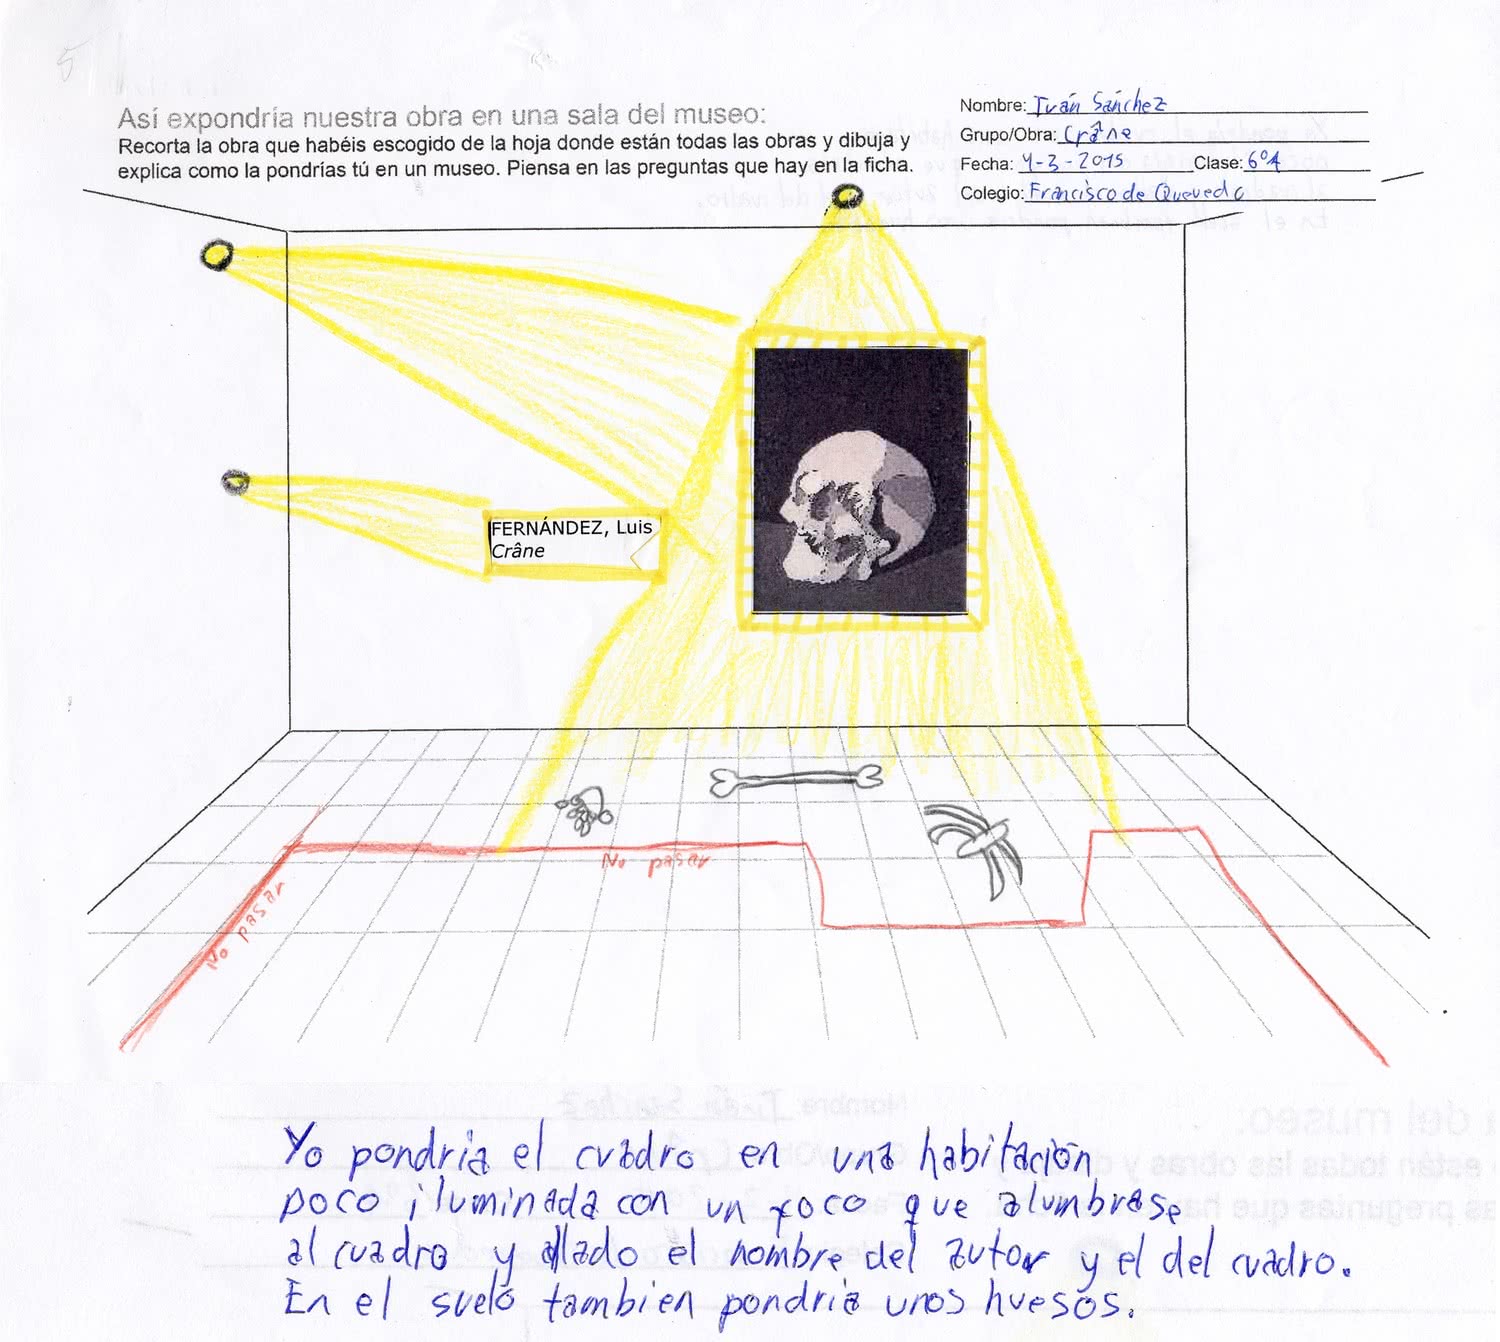 5
Así expondría nuestra obra en una sala del museo:
Recorta la obra que habéis escogido de la hoja donde están todas las obras y dibuja y
explica como la pondrías tú en un museo. Piensa en las preguntas que hay en la ficha.
Nombre: Iván Sánchez
Grupo/Obra: Crâne
Fecha: 4-3-2015 Clase: 6º4
Colegio: Francisco de Quevedo
FERNÁNDEZ, Luis
Crâne
No pasar
No pasar
Yo pondria el cuadro en una habitación
poco iluminada con un foco que alumbrase
al cuadro y allado el nombre del autor y el del cuadro.
En el suelo tambien pondria unos huesos.